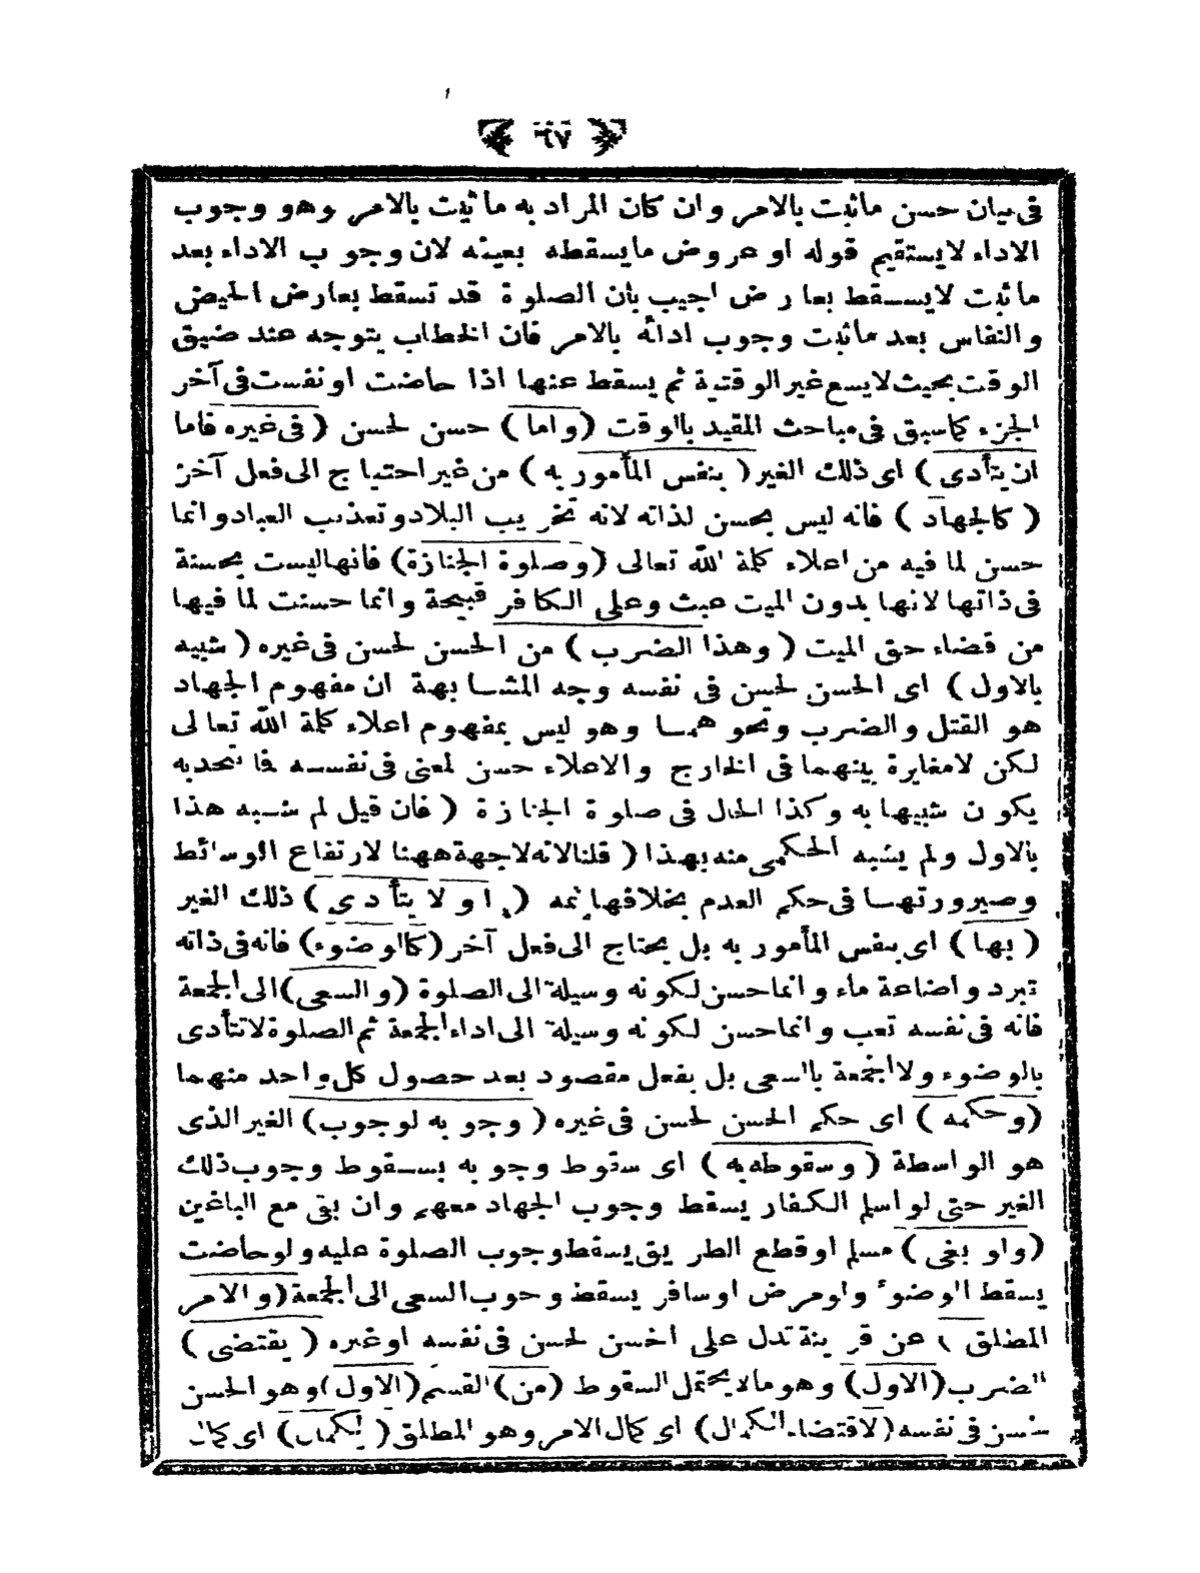 ٦٧
فى بيان حسن ماثبت بالامر وان كان المراد به ماثبت بالامر وهو وجوب
الاداء لايستقيم قوله او عروض مايسقطه بعينه لان وجوب الاداء بعد
ماثبت لايسقط بعارض اجيب بان الصلوة قد تسقط بعارض الحيض
والنفاس بعد ماثبت وجوب ادائه بالامر فان الخطاب يتوجه عند ضيق
الوقت بحيث لايسع غير الوقتية ثم يسقط عنها اذا حاضت او نفست فى آخر
الجزء كماسبق فى مباحث المقيد بالوقت (واما) حسن لحسن (فى غيره فاما
ان يتأدى) اى ذلك الغير (بنفس المأمور به) من غير احتياج الى فعل آخر
(كالجهاد) فانه ليس بحسن لذاته لانه تخريب البلاد وتعذيب العباد وانما
حسن لما فيه من اعلاء كلمة الله تعالى (وصلوة الجنازة) فانها ليست بحسنة
فى ذاتها لانها بدون الميت عبث وعلى الكافر قبيحة وانما حسنت لما فيها
من قضاء حق الميت (وهذا الضرب) من الحسن لحسن فى غيره (شبيه
بالاول) اى الحسن لحسن فى نفسه وجه المشابهة ان مفهوم الجهاد
هو القتل والضرب ونحوهما وهو ليس بمفهوم اعلاء كلمة الله تعالى
لكن لامغايرة بينهما فى الخارج والاعلاء حسن لمعنى فى نفسه فاتحد به
يكون شبيها به وكذا الحال فى صلوة الجنازة (فان قيل لم شبه هذا
بالاول ولم يشبه الحكمى منه بهذا (قلنا لانه لاجهة ههنا لارتفاع الوسائط
وصيرورتهما فى حكم العدم بخلافها ثمه (او لا يتأدى) ذلك الغير
(بها) اى بنفس المأمور به بل يحتاج الى فعل آخر (كالوضوء) فانه فى ذاته
تبرد واضاعة ماء وانما حسن لكونه وسيلة الى الصلوة (والسعى) الى الجمعة
فانه فى نفسه تعب وانما حسن لكونه وسيلة الى اداء الجمعة ثم الصلوة لاتتأدى
بالوضوء ولا الجمعة بالسعى بل بفعل مقصود بعد حصول كل واحد منهما
(وحكمه) اى حكم الحسن لحسن فى غيره (وجوبه لوجوب) الغير الذى
هو الواسطة (وسقوطه به) اى سقوط وجوبه بسقوط وجوب ذلك
الغير حتى لو اسلم الكفار يسقط وجوب الجهاد معهم وان بقى مع الباغين
(ولو بغى) مسلم او قطع الطريق يسقط وجوب الصلوة عليه ولو حاضت
يسقط الوضوء ولو مرض او سافر يسقط وجوب السعى الى الجمعة (والامر
المطلق) عن قرينة تدل على الحسن لحسن فى نفسه او غيره (يقتضى)
الضرب (الاول) وهو مالا يحتمل السقوط (من) القسم (الاول) وهو الحسن
لحسن فى نفسه (لاقتضاء الكمال) اى كمال الامر وهو المطلق (الكمال) اى كمال